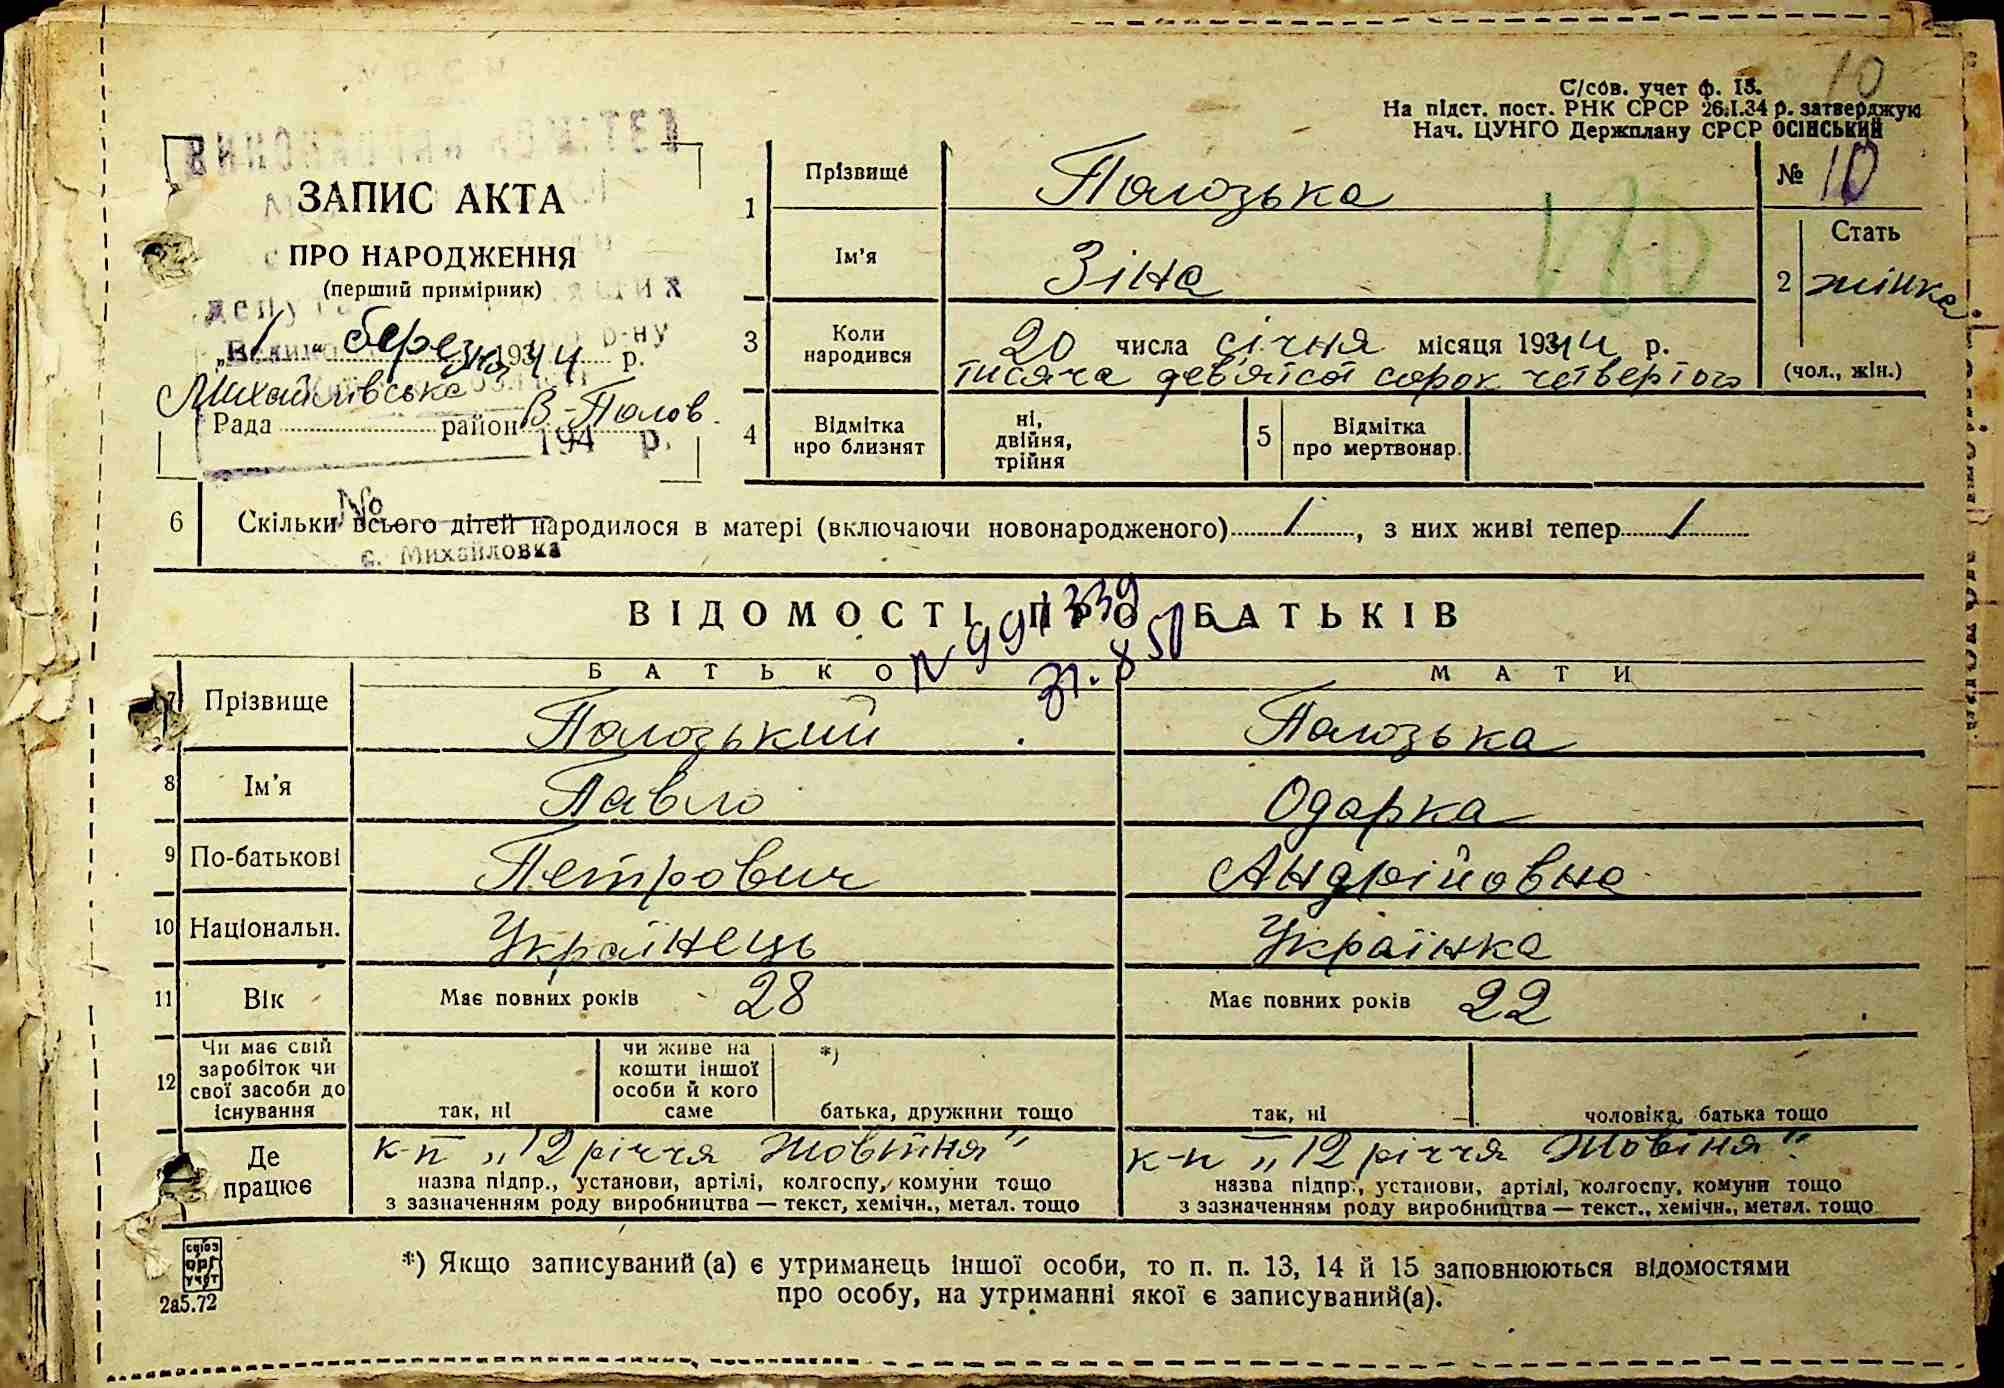 10
С/сов. учет ф. 13.
На підст. пост. РНК СРСР 26.I.34 р. затверджую
Нач. ЦУНГО Держплану СРСР ОСІНСЬКИЙ
ЗАПИС АКТА
ПРО НАРОДЖЕННЯ
(перший примірник)
„1“ березня 1944 р.
Михайлівська
Рада район В-Полов.
194 р.
№
с. Михайловка
1 Прізвище Полозька
№ 10
180
Ім’я Зіна
2 Стать жінка
(чол., жін.)
3 Коли народився 20 числа січня місяця 19344 р.
тисяча дев'ятсот сорок четвертого
4 Відмітка про близнят ні, двійня, трійня
5 Відмітка про мертвонар.
6 Скільки всього дітей народилося в матері (включаючи новонародженого) 1, з них живі тепер 1
ВІДОМОСТІ ПРО БАТЬКІВ
N 991339
31.8 50
БАТЬКО МАТИ
7 Прізвище Полозький Полозька
8 Ім’я Павло Одарка
9 По-батькові Петрович Андрійовна
10 Національн. Українець Українка
11 Вік Має повних років 28 Має повних років 22
12 Чи має свій заробіток чи свої засоби до існування так, ні чи живе на кошти іншої особи й кого саме *) батька, дружини тощо так, ні чоловіка, батька тощо
Де працює к-п „12 річчя Жовтня“ к-п „12 річчя Жовтня“
назва підпр., установи, артілі, колгоспу, комуни тощо назва підпр., установи, артілі, колгоспу, комуни тощо
з зазначенням роду виробництва — текст, хемічн., метал. тощо з зазначенням роду виробництва — текст., хемічн., метал. тощо
союз
орг
учет
2а5.72
*) Якщо записуваний (а) є утриманець іншої особи, то п. п. 13, 14 й 15 заповнюються відомостями
про особу, на утриманні якої є записуваний(а).